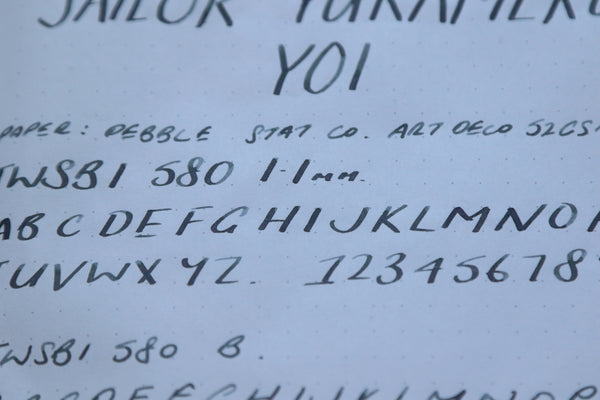 SAILOR YURAMEKU
YOI
PAPER: PEBBLE STAT CO. ART DECO 52GS
TWSBI 580 1.1mm.
ABCDEFGHIJKLMNO
TUVWXYZ. 12345678
TWSBI 580 B.
ABCDEFGHIJKLMNOP